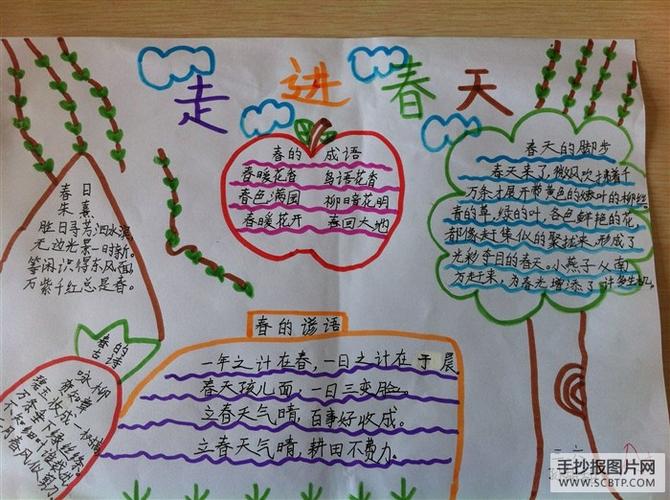 走进春天
春日
朱熹
胜日寻芳泗水滨
无边光景一时新。
等闲识得东风面，
万紫千红总是春。
春的
古诗
咏柳
贺知章
碧玉妆成一树高
万条垂下绿丝绦。
不知细叶谁裁出
二月春风似剪刀
春的成语
春暖花香 鸟语花香
春色满园 柳暗花明
春暖花开 春回大地
春的谚语
一年之计在春，一日之计在于晨
春天孩儿面，一日三变脸。
立春天气晴，百事好收成。
立春天气晴，耕田不费力。
春天的脚步
春天来了，微风吹拂着千
万条才展开带黄色的嫩叶的柳丝
青的草，绿的叶，各色鲜艳的花，
都像赶集似的聚拢来，形成了
光彩夺目的春天。小燕子从南
方赶来，为春光增添了许多生机。
手抄报图片网
WWW.SCBTP.COM